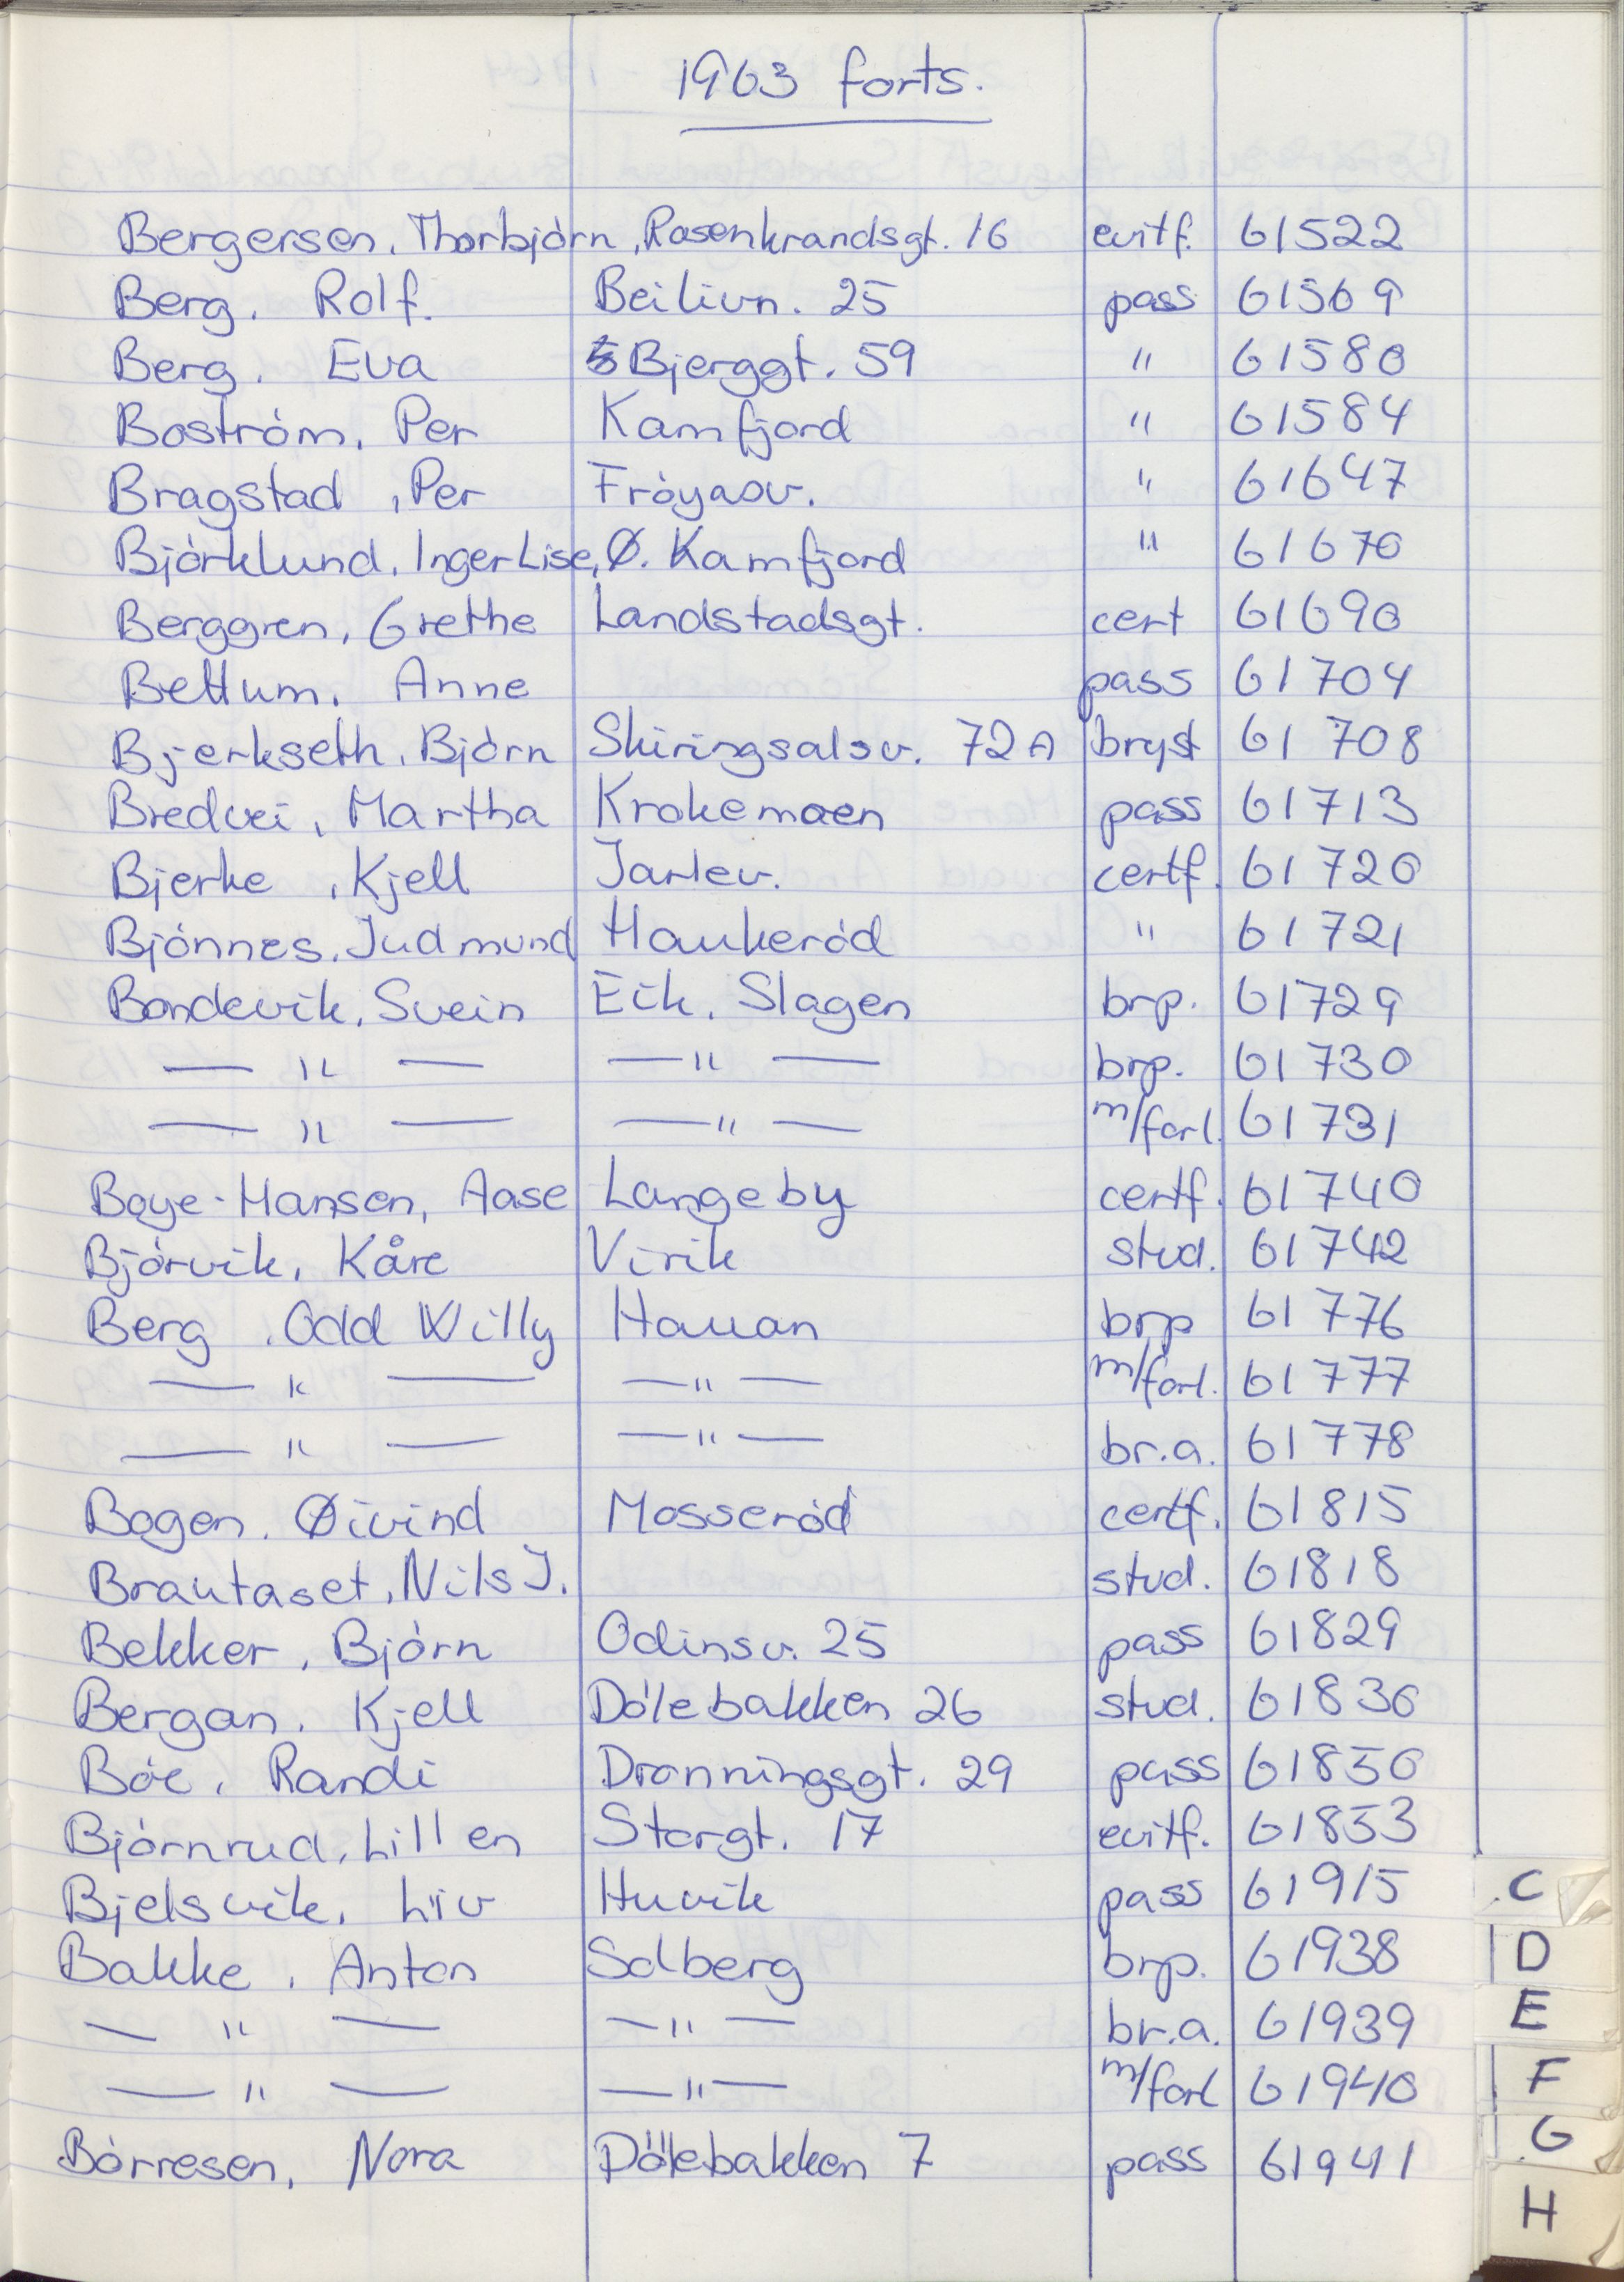 1963 forts.
Bergersen, Thorbjörn, Rosenkrandsgt. 16 evitf. 61522
Berg, Rolf. Beilivn. 25 pass 61569
Berg, Eva Bjerggt. 59 " 61580
Boström, Per Kamfjord " 61584
Bragstad, Per Fröyasv. " 61647
Björklund, Inger Lise, Ø. Kamfjord " 61670
Berggren, Grethe Landstadsgt. cert 61690
Bettum, Anne pass 61704
Bjerkseth, Björn Skiringsalsv. 72A bryst 61708
Bredvei, Martha Krokemoen pass 61713
Bjerke, Kjell Jarlev. certf. 61720
Bjönnes, Judmund Haukeröd " 61721
Bondevik, Svein Eik, Slagen brp. 61729
— " — — " — brp. 61730
— " — — " — m/forl. 61731
Boye-Hansen, Aase Langeby certf. 61740
Björvik, Kåre Virik stud. 61742
Berg, Odd Willy Hauan brp 61776
— " — — " — m/forl. 61777
— " — — " — br.a. 61778
Bogen, Øivind Mosseröd certf. 61815
Brautaset, Nils J. stud. 61818
Bekker, Björn Odinsv. 25 pass 61829
Bergan, Kjell Dölebakken 26 stud. 61836
Böe, Randi Dronningsgt. 29 pass 61850
Björnrud, Lillen Storgt. 17 evitf. 61853
Bjelsvik, Liv Huvik pass 61915
Bakke, Anton Solberg brp. 61938
— " — — " — br.a. 61939
— " — — " — m/forl 61940
Börresen, Nora Dölebakken 7 pass 61941
C
D
E
F
G
H